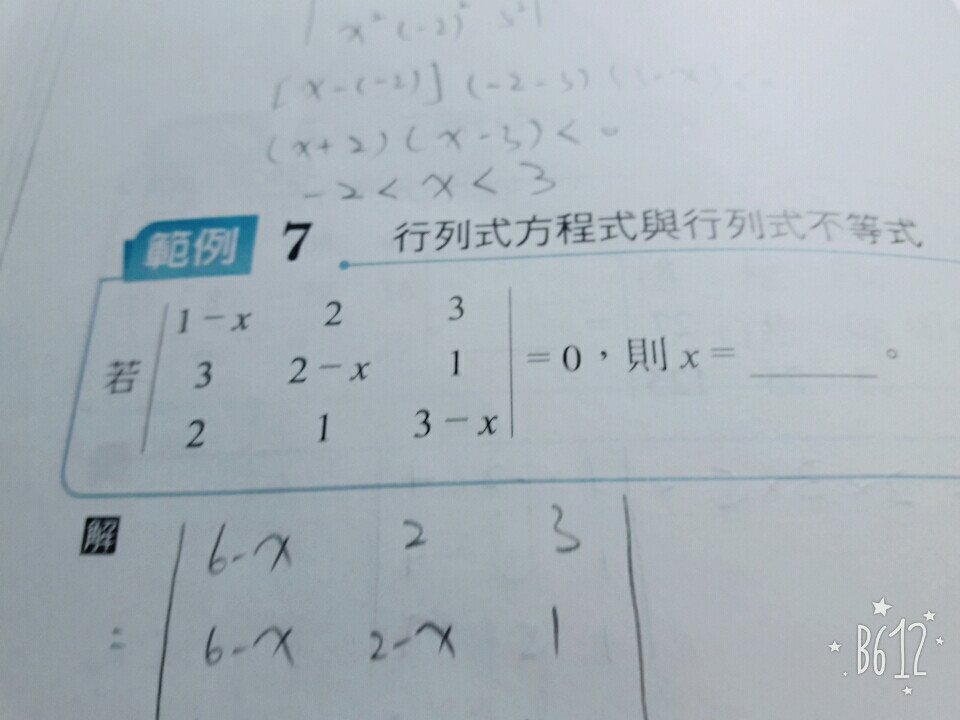 x² (-2)² 3²
[x-(-2)] (-2-3) (3-x)
(x+2)(x-3)<0
-2<x<3
範例 7 行列式方程式與行列式不等式
1-x 2 3
若 3 2-x 1 =0,則 x= ______ 。
2 1 3-x
解 6-x 2 3
= 6-x 2-x 1
B612